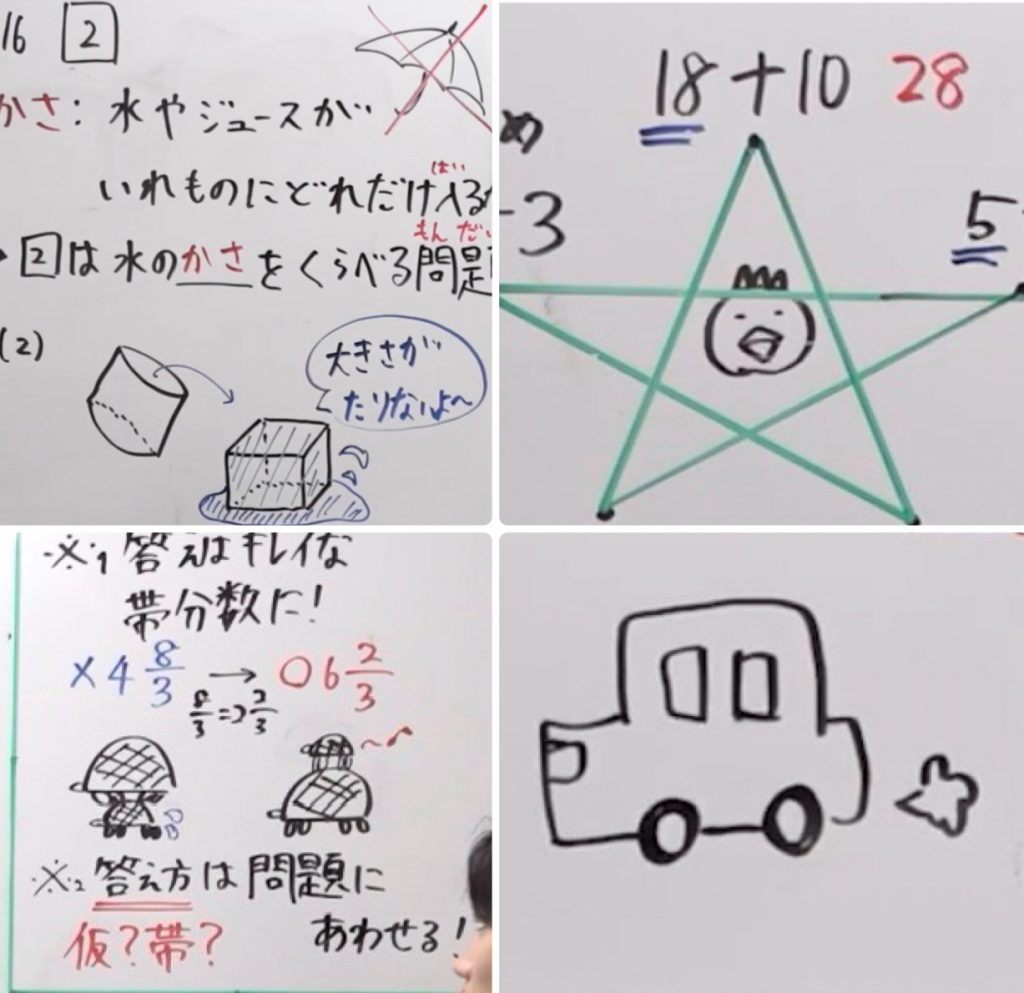 16 2
かさ：水やジュースが
いれものにどれだけ入る
ばい
2は水のかさをくらべる問題
もんだい
(2)
大きさが
たりないよ〜
18+10 28
-3
5
※1 答えはキレイな
帯分数に!
×4 8/3 → ○6 2/3
8/3=2 2/3
※2 答え方は問題に
あわせる!
仮?帯?